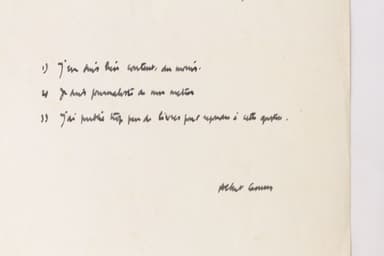 1) J'en suis très content, du moins.
2) Je suis journaliste de mon métier
3) J'ai publié trop peu de livres pour répondre à cette question.
Albert Camus